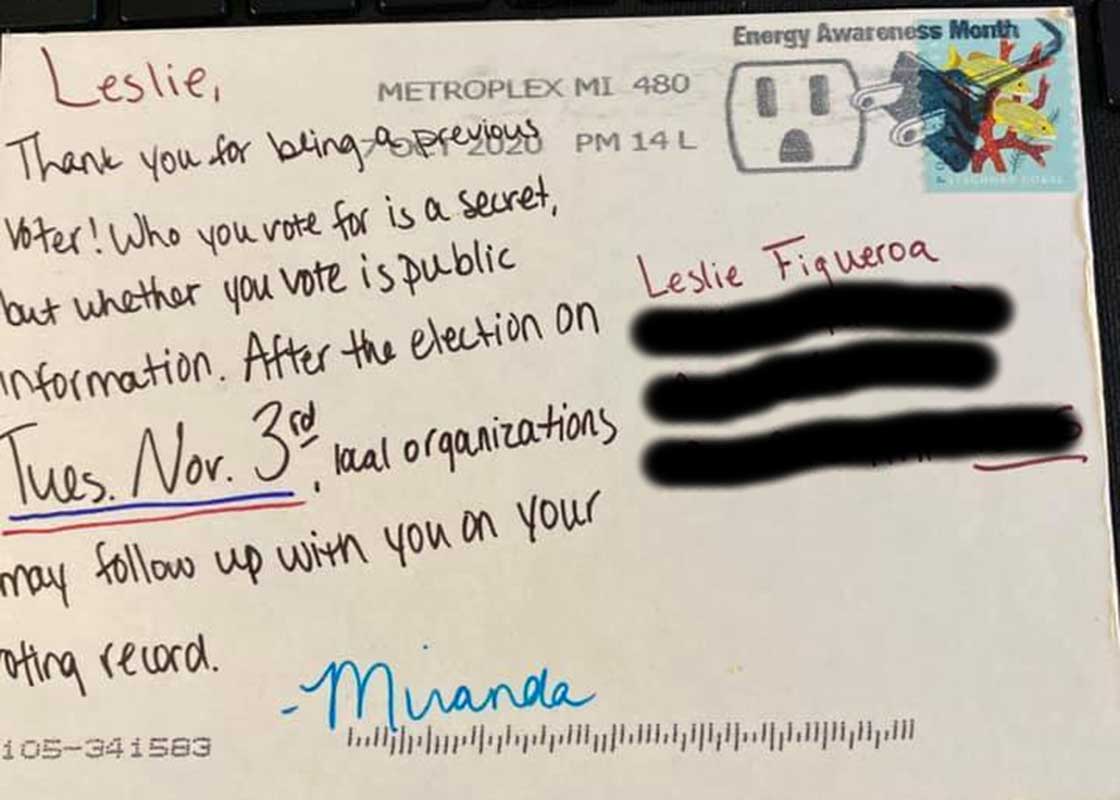 Energy Awareness Month
METROPLEX MI 480
2020 PM 14 L
Leslie,
Thank you for being a previous
voter! Who you vote for is a secret,
but whether you vote is public
information. After the election on
Tues. Nov. 3rd, local organizations
may follow up with you on your
oting record.
-Miranda
Leslie Figueroa
105-341583